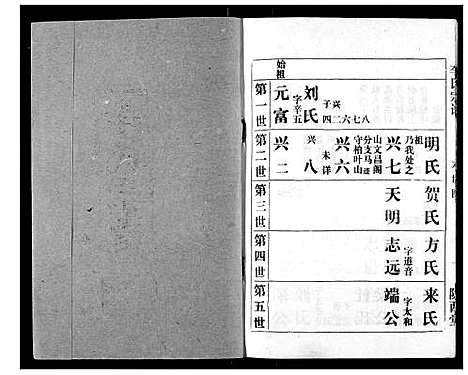 始祖
第一世
元富
字辛五
刘氏
子兴
四二六七八
第二世
兴二
兴八
未详
兴六
守柏叶山
分支马迹
山文昌阁
兴七
乃我处之
祖
明氏
第三世
天明
贺氏
第四世
志远
字道音
方氏
第五世
端公
字太和
来氏